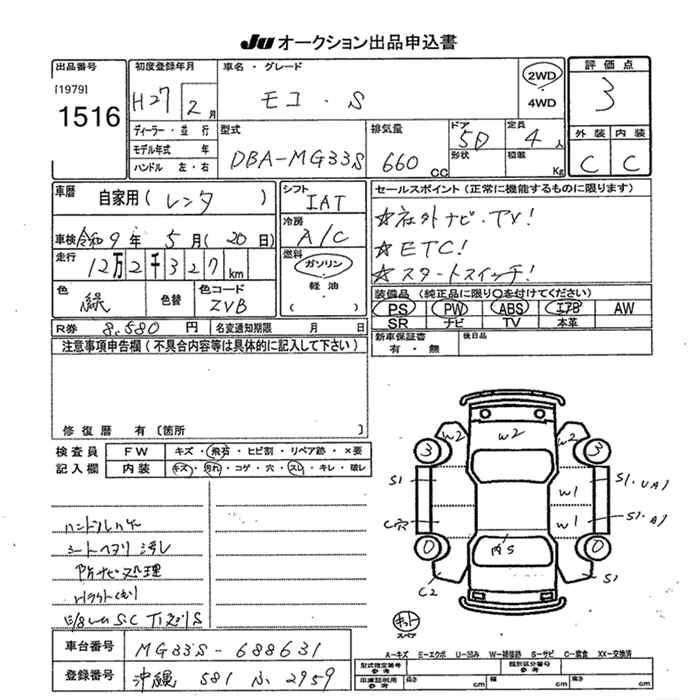 JU オークション出品申込書
出品番号
[1979]
1516
初度登録年月
H27 2月
車名・グレード
モコ・S
2WD
4WD
評価点
3
外装 内装
C C
ディーラー・並行
モデル年式 年
ハンドル 左・右
型式
DBA-MG33S
排気量
660 CC
ドア
5D
形状
定員
4人
積載
Kg
車歴
自家用(レンタ)
車検 令和9年5月(20日)
走行
12万2千327km
色
緑
色替
色コード
ZVB
シフト
IAT
冷房
A/C
燃料
ガソリン
軽油
( )
セールスポイント(正常に機能するものに限ります)
☆社外ナビ・TV!
☆ETC!
☆スタートスイッチ!
装備品(純正品に限り○を付けてください)
PS PW ABS エアB AW
SR ナビ TV 本革
R券 8,580円
名変通知期限 月 日
新車保証書
有・無
後日品
注意事項申告欄(不具合内容等は具体的に記入して下さい)
修復歴 有〔箇所 〕
検査員
記入欄
FW キズ・飛石・ヒビ割・リペア跡・×要
内装 キズ・汚れ・コゲ・穴・スレ・キレ・破レ
シートヘタリ 汚レ
W2 W2 W2
3 3
S1 S1・UA1
W1
C穴 W1 S1・A1
0 0
C2 S1
キット
スペア
A-キズ E-エクボ U-凹み W-補修跡 S-サビ C-腐食 XX-交換済
車台番号 MG33S-688631
登録番号 沖縄 581 ふ 2959
型式指定番号
参考
類別区分番号
参考
長さ cm 幅 cm 高さ cm